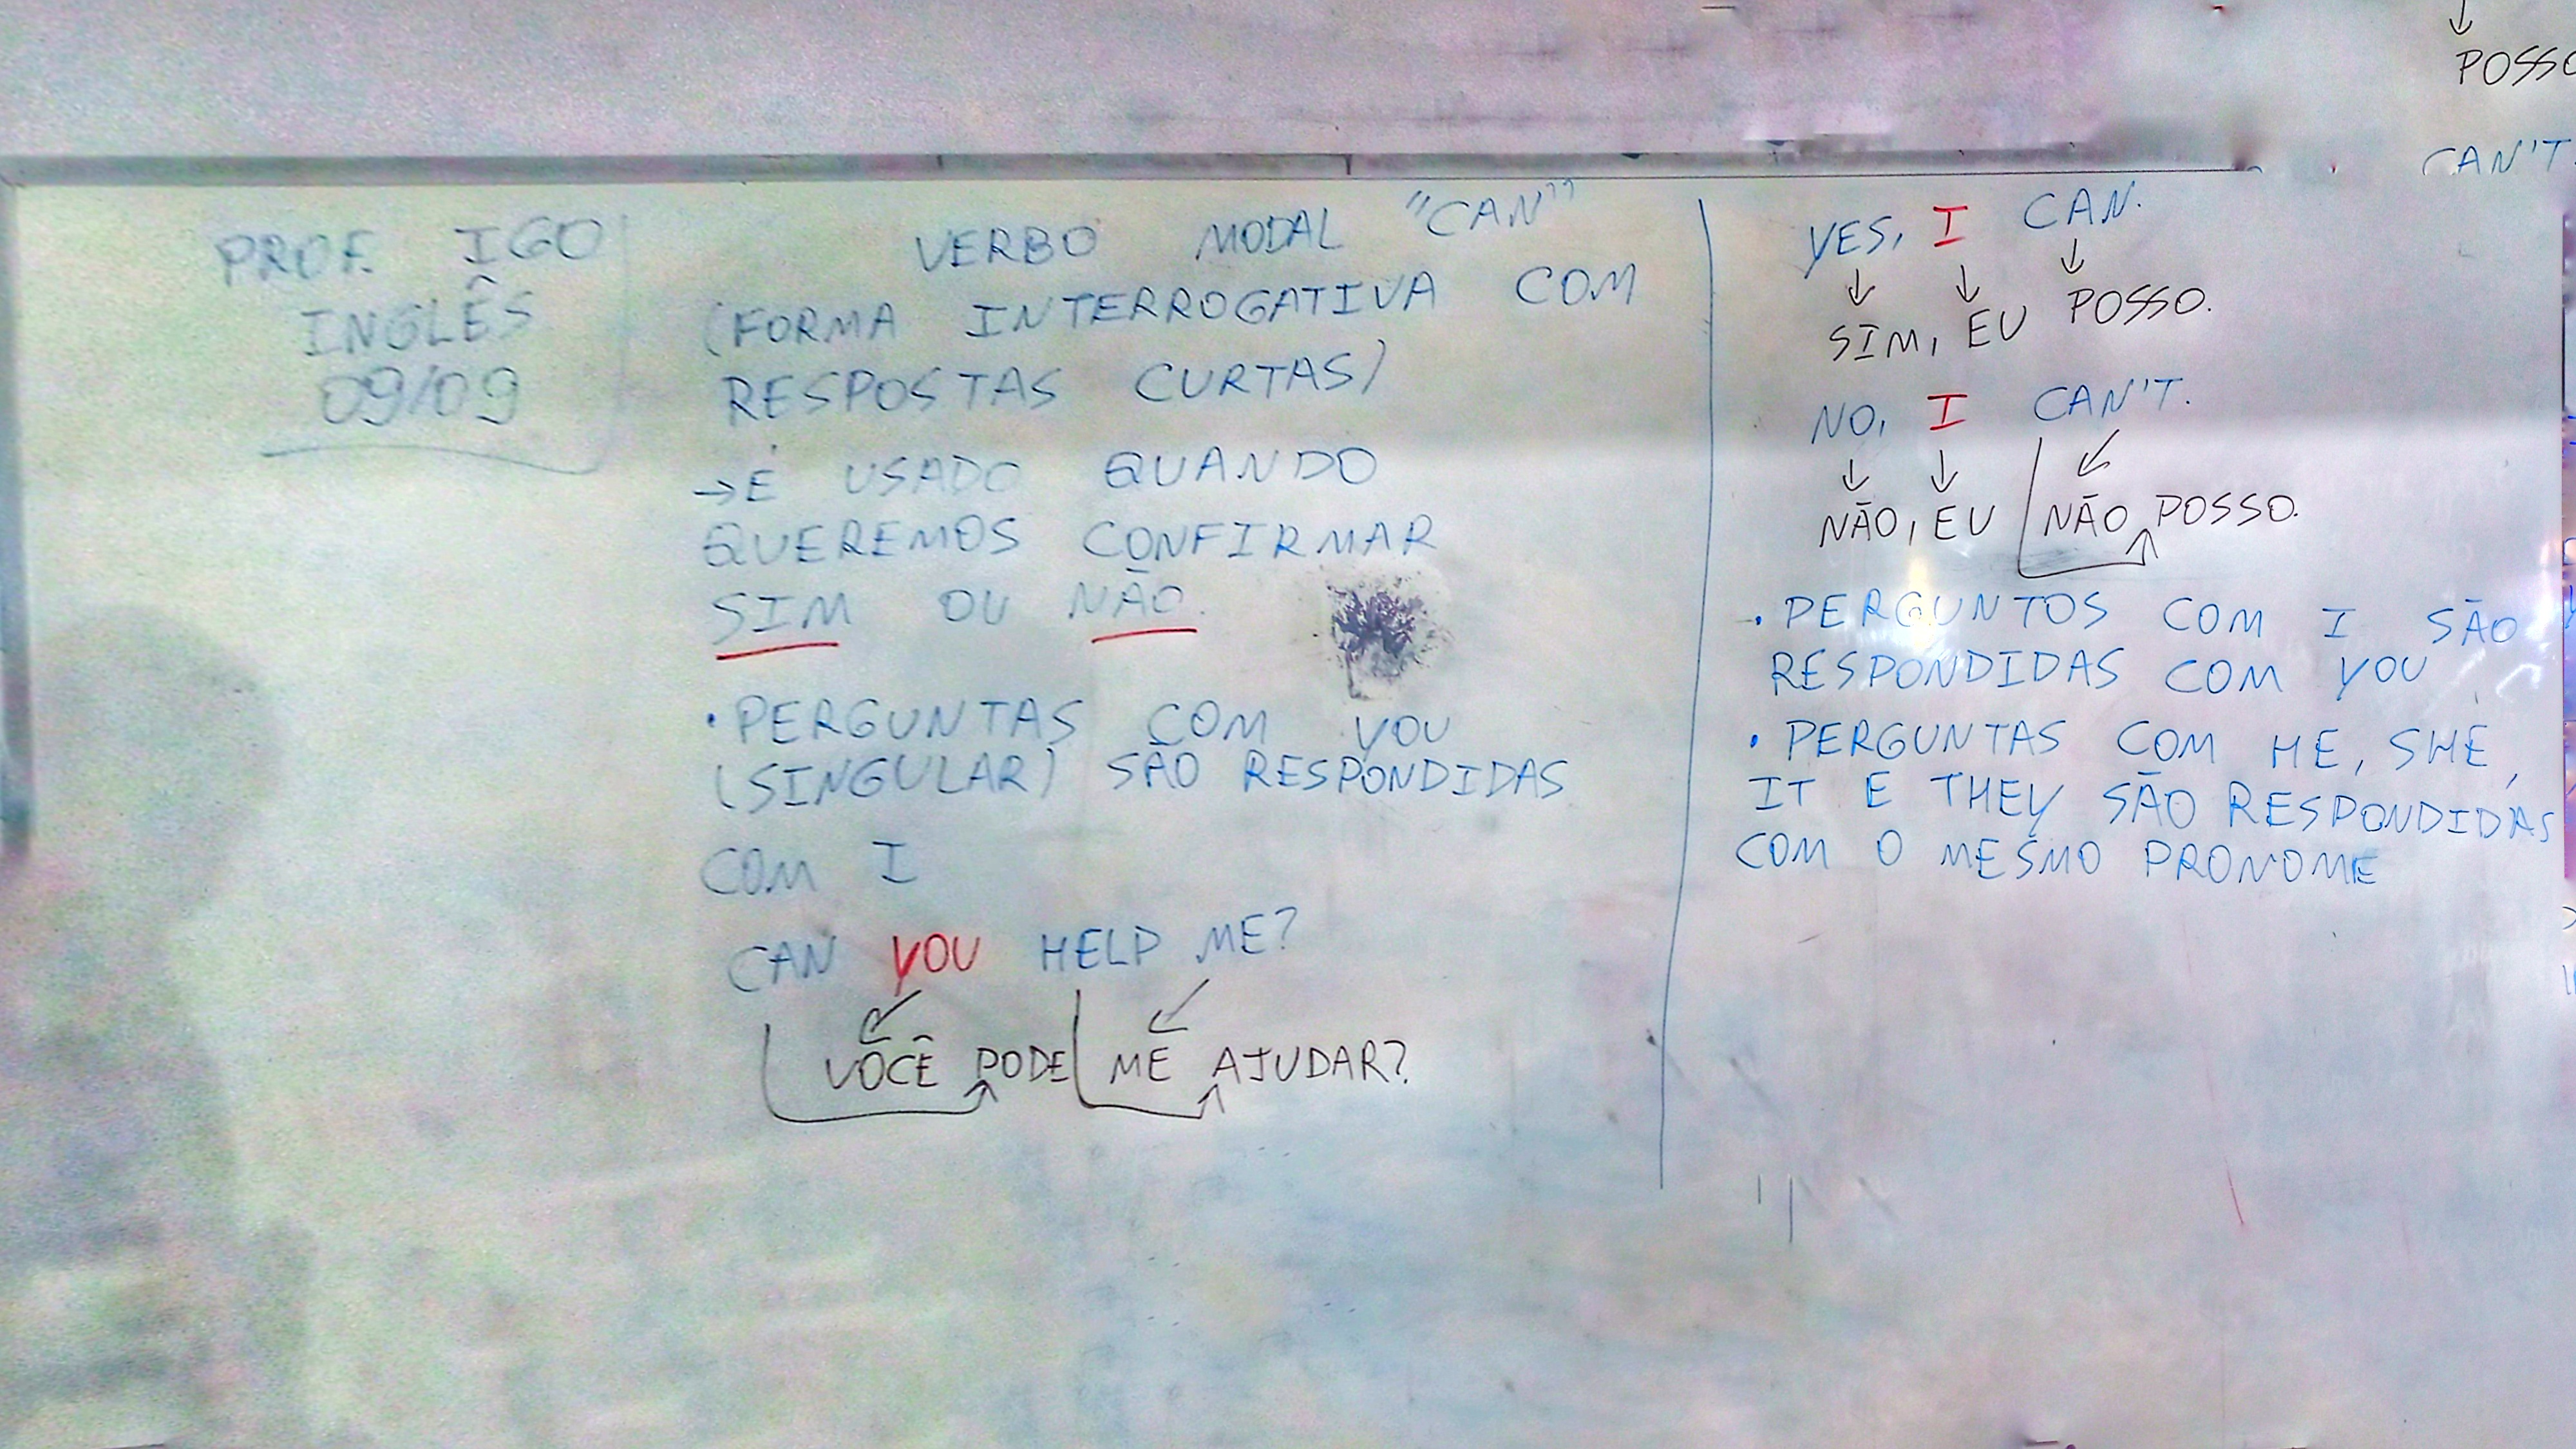 PROF. IGO
INGLÊS
09/09
VERBO MODAL "CAN"
(FORMA INTERROGATIVA COM
RESPOSTAS CURTAS)
→ É USADO QUANDO
QUEREMOS CONFIRMAR
SIM OU NÃO.
• PERGUNTAS COM YOU
(SINGULAR) SÃO RESPONDIDAS
COM I
CAN YOU HELP ME?
VOCÊ PODE ME AJUDAR?
YES, I CAN.
SIM, EU POSSO.
NO, I CAN'T.
NÃO, EU NÃO POSSO.
• PERGUNTOS COM I SÃO
RESPONDIDAS COM YOU
• PERGUNTAS COM HE, SHE,
IT E THEY SÃO RESPONDIDAS
COM O MESMO PRONOME
POSSO
CAN'T